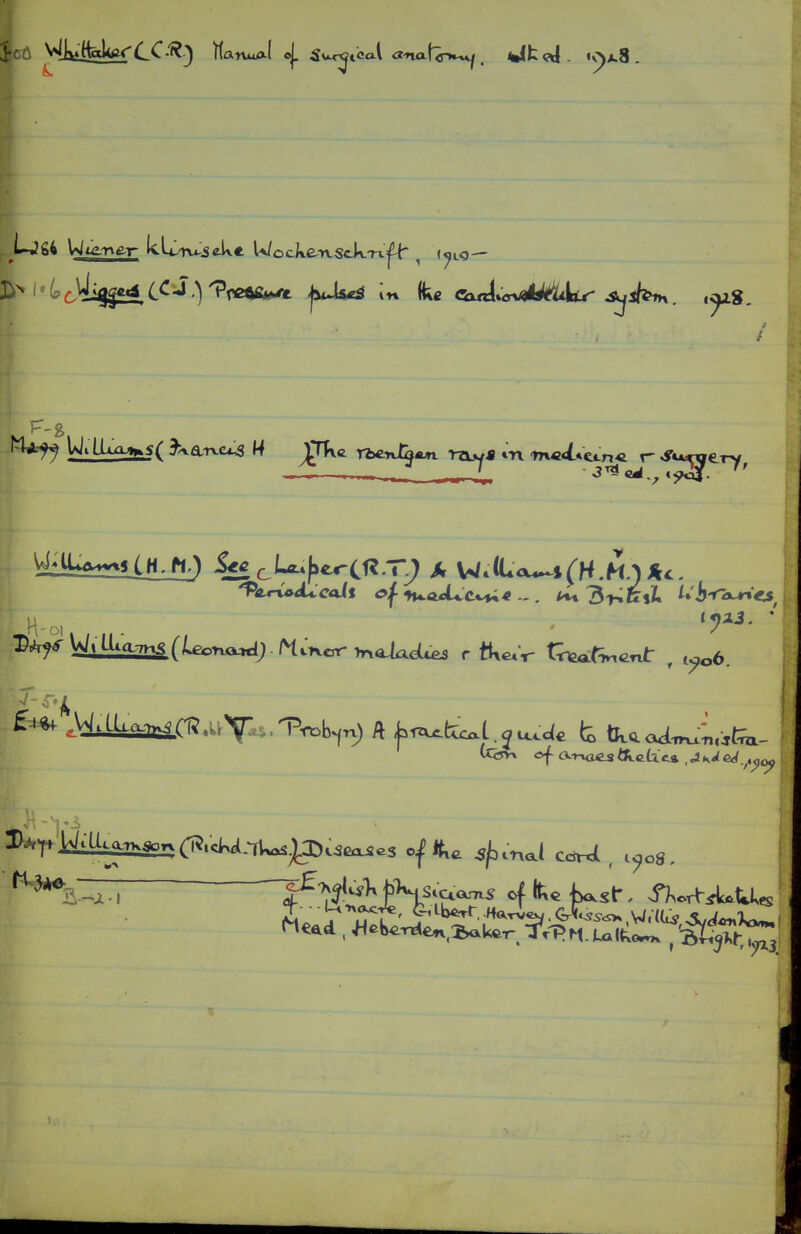 Whittaker (C.R.) Manual of Surgical anatomy. 4th ed. 1928.
L266 Wiener klinische Wochenschrift, 1910—
Wiggers (C.J.) Pressure pulses in the Cardiovascular System. 1928.
F-8
Williams (Francis H) The roentgen rays in medicine & surgery,
3rd ed., 1903.
Williams (H.M.) See Leiper (R.T.) & Williams (H.M.) &c.
Periodicals of medicine ... in British libraries,
1923.
H-01
Williams (Leonard) Minor maladies & their treatment, 1906.
Williams (R. Probyn) A practical guide to the administra-
tion of anaesthetics, 2nd ed., 1909
H-4-3
Williamson (Richd. Thos) Diseases of the spinal cord, 1908.
M340 English physicians of the past. Short sketches
B-2-1 of ... Linacre, Gilbert, Harvey, Glisson, Willis, Sydenham,
Mead, Heberden, Baker, Tr. P.M. Latham, Bright, 1923